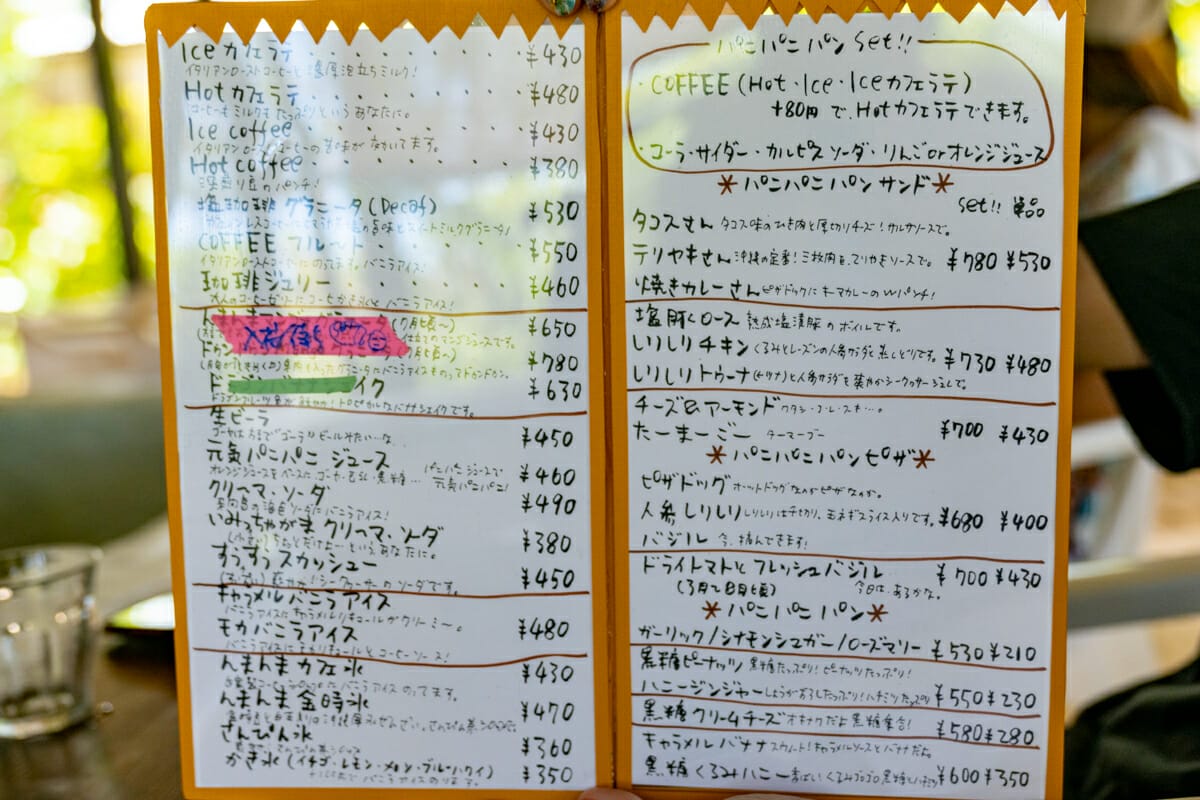 Ice カフェラテ ¥430
イタリアンローストコーヒーと濃厚泡立ちミルク!
Hot カフェラテ ¥480
コーヒーもミルクもたっぷりという あなたに。
Ice coffee ¥430
Hot coffee ¥380
深煎り豆のパンチ!
塩珈琲 グラニータ(Decaf) ¥530
COFFEE フルート ¥550
イタリアンローストコーヒーにのってます。バニラアイス!
珈琲ジュリー ¥460
大人のコーヒーゼリーにコーヒーかき氷と バニラアイス!
(7月頃〜) ¥650
(7月頃〜)
¥780
イク ¥630
生ビーラ
ゴーヤはおまへ"ゴーラ" ビールみたい…な ¥450
元気パニパニ ジュース ¥460
オレンジジュースをベースに、ゴーヤ・もろし・黒糖… パニパニジュースで元気パニパニ!
クリーマ・ソーダ ¥490
いみっちゃがま クリーマ・ソーダ ¥380
(小さい) ちょっとだけよ…という、あなたに。
すぅすぅ スカッシュー ¥450
爽やか!シークヮーサーのソーダです。
キャラメルバニラアイス
バニラアイスにキャラメルリキュールがクリーミー。
モカバニラアイス ¥480
バニラアイスにモカリキュールと コーヒーソース!
んまんま カフェ氷 ¥430
んまんま 金時氷 ¥470
さんぴん氷 ¥360
かき氷(イチゴ・レモン・メロン・ブルーハワイ) ¥350
パニパニパン set!!
・COFFEE(Hot・Ice・Iceカフェラテ)
+80円で、Hotカフェラテできます。
・コーラ・サイダー・カルピスソーダ・りんごorオレンジジュース
*パニパニパンサンド*
set!! 単品
タコスさん タコス味のひき肉と厚切りチーズ!サルサソースで。
テリヤキさん 沖縄の定番!三枚肉を、てりやきソースで。 ¥780 ¥530
焼きカレーさん ピザドックにキーマカレーのWパンチ!
塩豚くロース 熟成塩漬豚のボイルです。
しりしりチキン くるみとレーズンの人参サラダと蒸しどりです。 ¥730 ¥480
しりしりトゥーナ (ツナ)と人参サラダを爽やかシークヮサージュレで。
チーズ&アーモンド ワタシ・コ・レ・スキ…。
たーまーごー ターマーゴー ¥700 ¥430
*パニパニパンピザ*
ピザドッグ ホットドッグなのかピザなのか。
人参しりしり しりしりは千切り、玉ネギスライス入りです。 ¥680 ¥400
バジル 今、摘んできます!
ドライトマトとフレッシュバジル ¥700 ¥430
(3月〜8月頃) 今日は、あるかな。
*パニパニパン*
ガーリック/シナモンシュガー/ローズマリー ¥530 ¥210
黒糖ピーナッツ 黒糖たっぷり!ピーナッツたっぷり!
ハニージンジャー しょうがすりたっぷり!ハチミツたっぷり ¥550 ¥230
黒糖クリームチーズ オトナクだよ黒糖集合! ¥580 ¥280
キャラメルバナナ スウィート!キャラメルソースとバナナだよ。
黒糖くるみハニー 香ばしいくるみゴロゴロ黒糖とハチミツ ¥600 ¥350